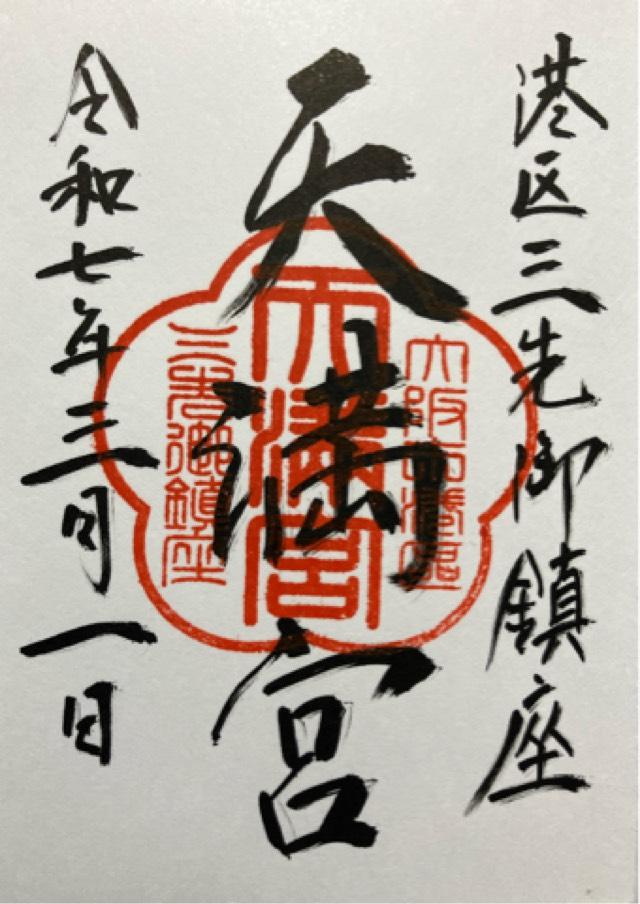 港区三先御鎮座
天満宮
令和七年三月一日
大阪市港區
天満宮
三先御鎮座